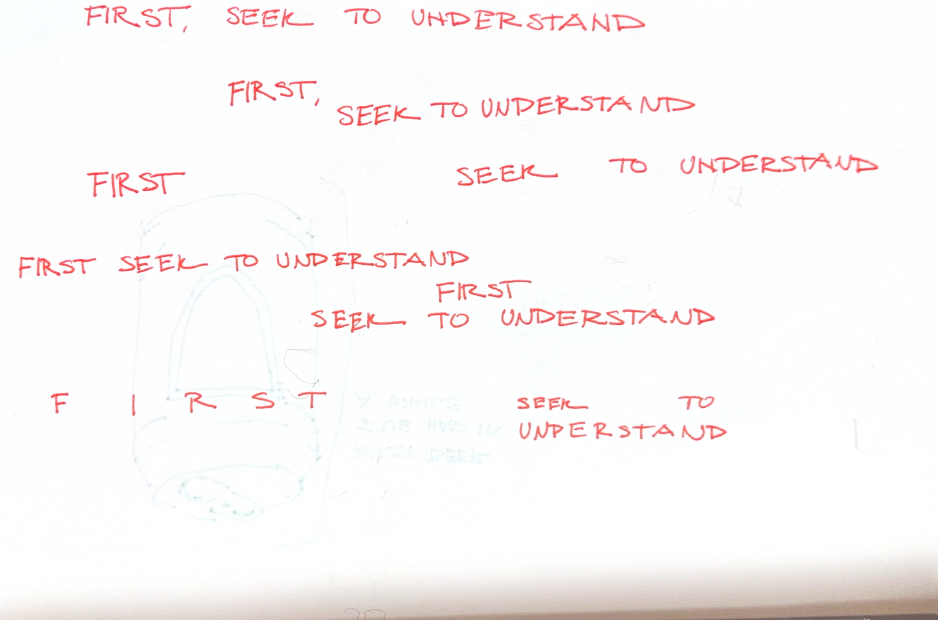 FIRST, SEEK TO UNDERSTAND
FIRST,
SEEK TO UNDERSTAND
FIRST SEEK TO UNDERSTAND
FIRST SEEK TO UNDERSTAND
FIRST
SEEK TO UNDERSTAND
F I R S T SEEK TO
UNDERSTAND